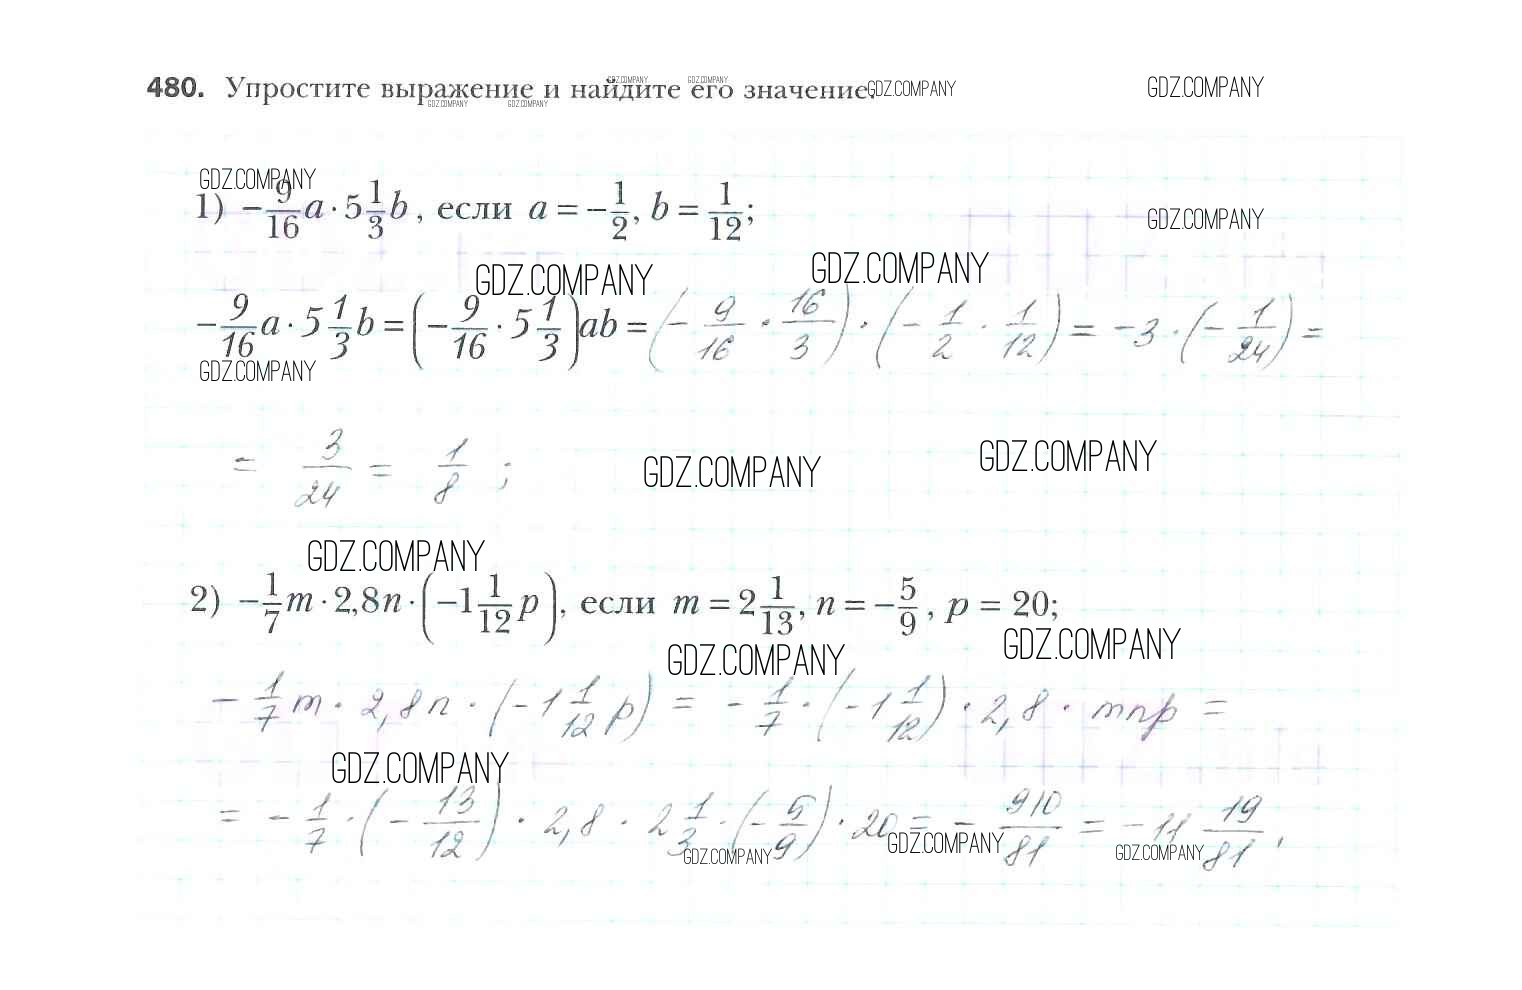 480. Упростите выражение и найдите его значение.
GDZ.COMPANY GDZ.COMPANY GDZ.COMPANY GDZ.COMPANY
GDZ.COMPANY GDZ.COMPANY
GDZ.COMPANY
1) -9/16 a · 5 1/3 b, если a = -1/2, b = 1/12;
GDZ.COMPANY
GDZ.COMPANY GDZ.COMPANY
-9/16 a · 5 1/3 b = (-9/16 · 5 1/3)ab = (- 9/16 · 16/3) · (- 1/2 · 1/12) = -3 · (- 1/24) =
GDZ.COMPANY
= 3/24 = 1/8 ;
GDZ.COMPANY GDZ.COMPANY
GDZ.COMPANY
2) -1/7 m · 2,8n · (-1 1/12 p), если m = 2 1/13, n = -5/9, p = 20;
GDZ.COMPANY GDZ.COMPANY
- 1/7 m · 2,8n · (-1 1/12 p) = - 1/7 · (-1 1/12) · 2,8 · mnp =
GDZ.COMPANY
= - 1/7 · (- 13/12) · 2,8 · 2 1/3 · (- 5/9) · 20 = - 910/81 = -11 19/81 .
GDZ.COMPANY GDZ.COMPANY GDZ.COMPANY